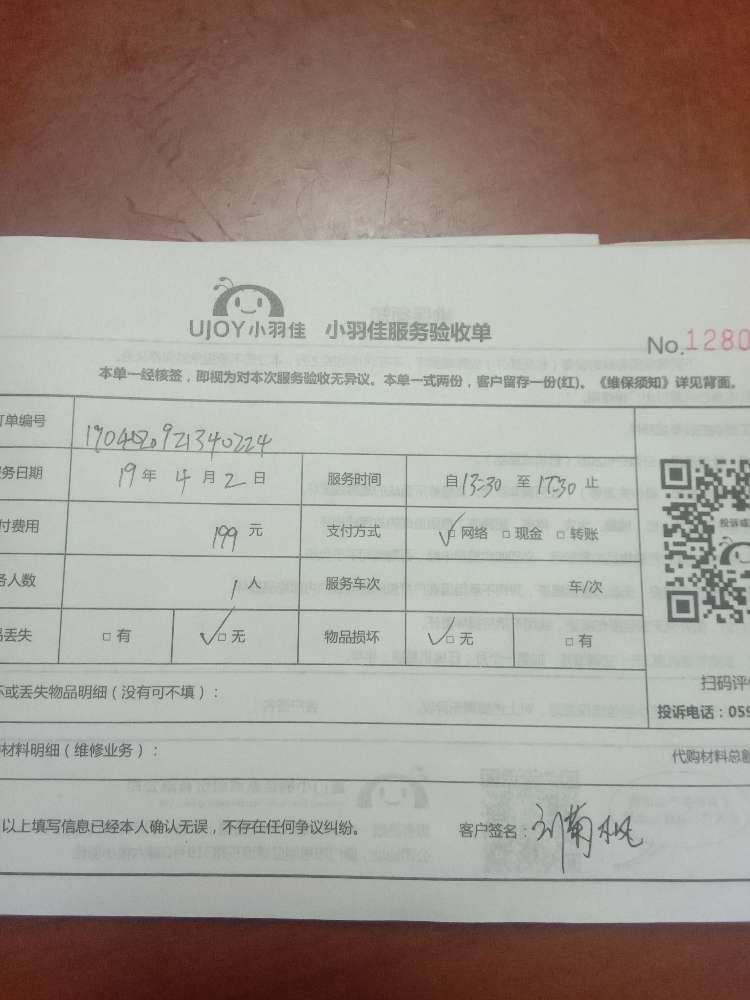 UJOY小羽佳 小羽佳服务验收单
No.1280
本单一经核签，即视为对本次服务验收无异议。本单一式两份，客户留存一份(红)。《维保须知》详见背面。
订单编号
务日期 19年4月2日 服务时间 自13:30至17:30止
付费用 199元 支付方式 ✓□网络 □现金 □转账
务人数 1人 服务车次 车/次
品丢失 □有 ✓□无 物品损坏 ✓□无 □有
扫码评
投诉电话：059
坏或丢失物品明细（没有可不填）：
材料明细（维修业务）： 代购材料总额
以上填写信息已经本人确认无误，不存在任何争议纠纷。 客户签名：